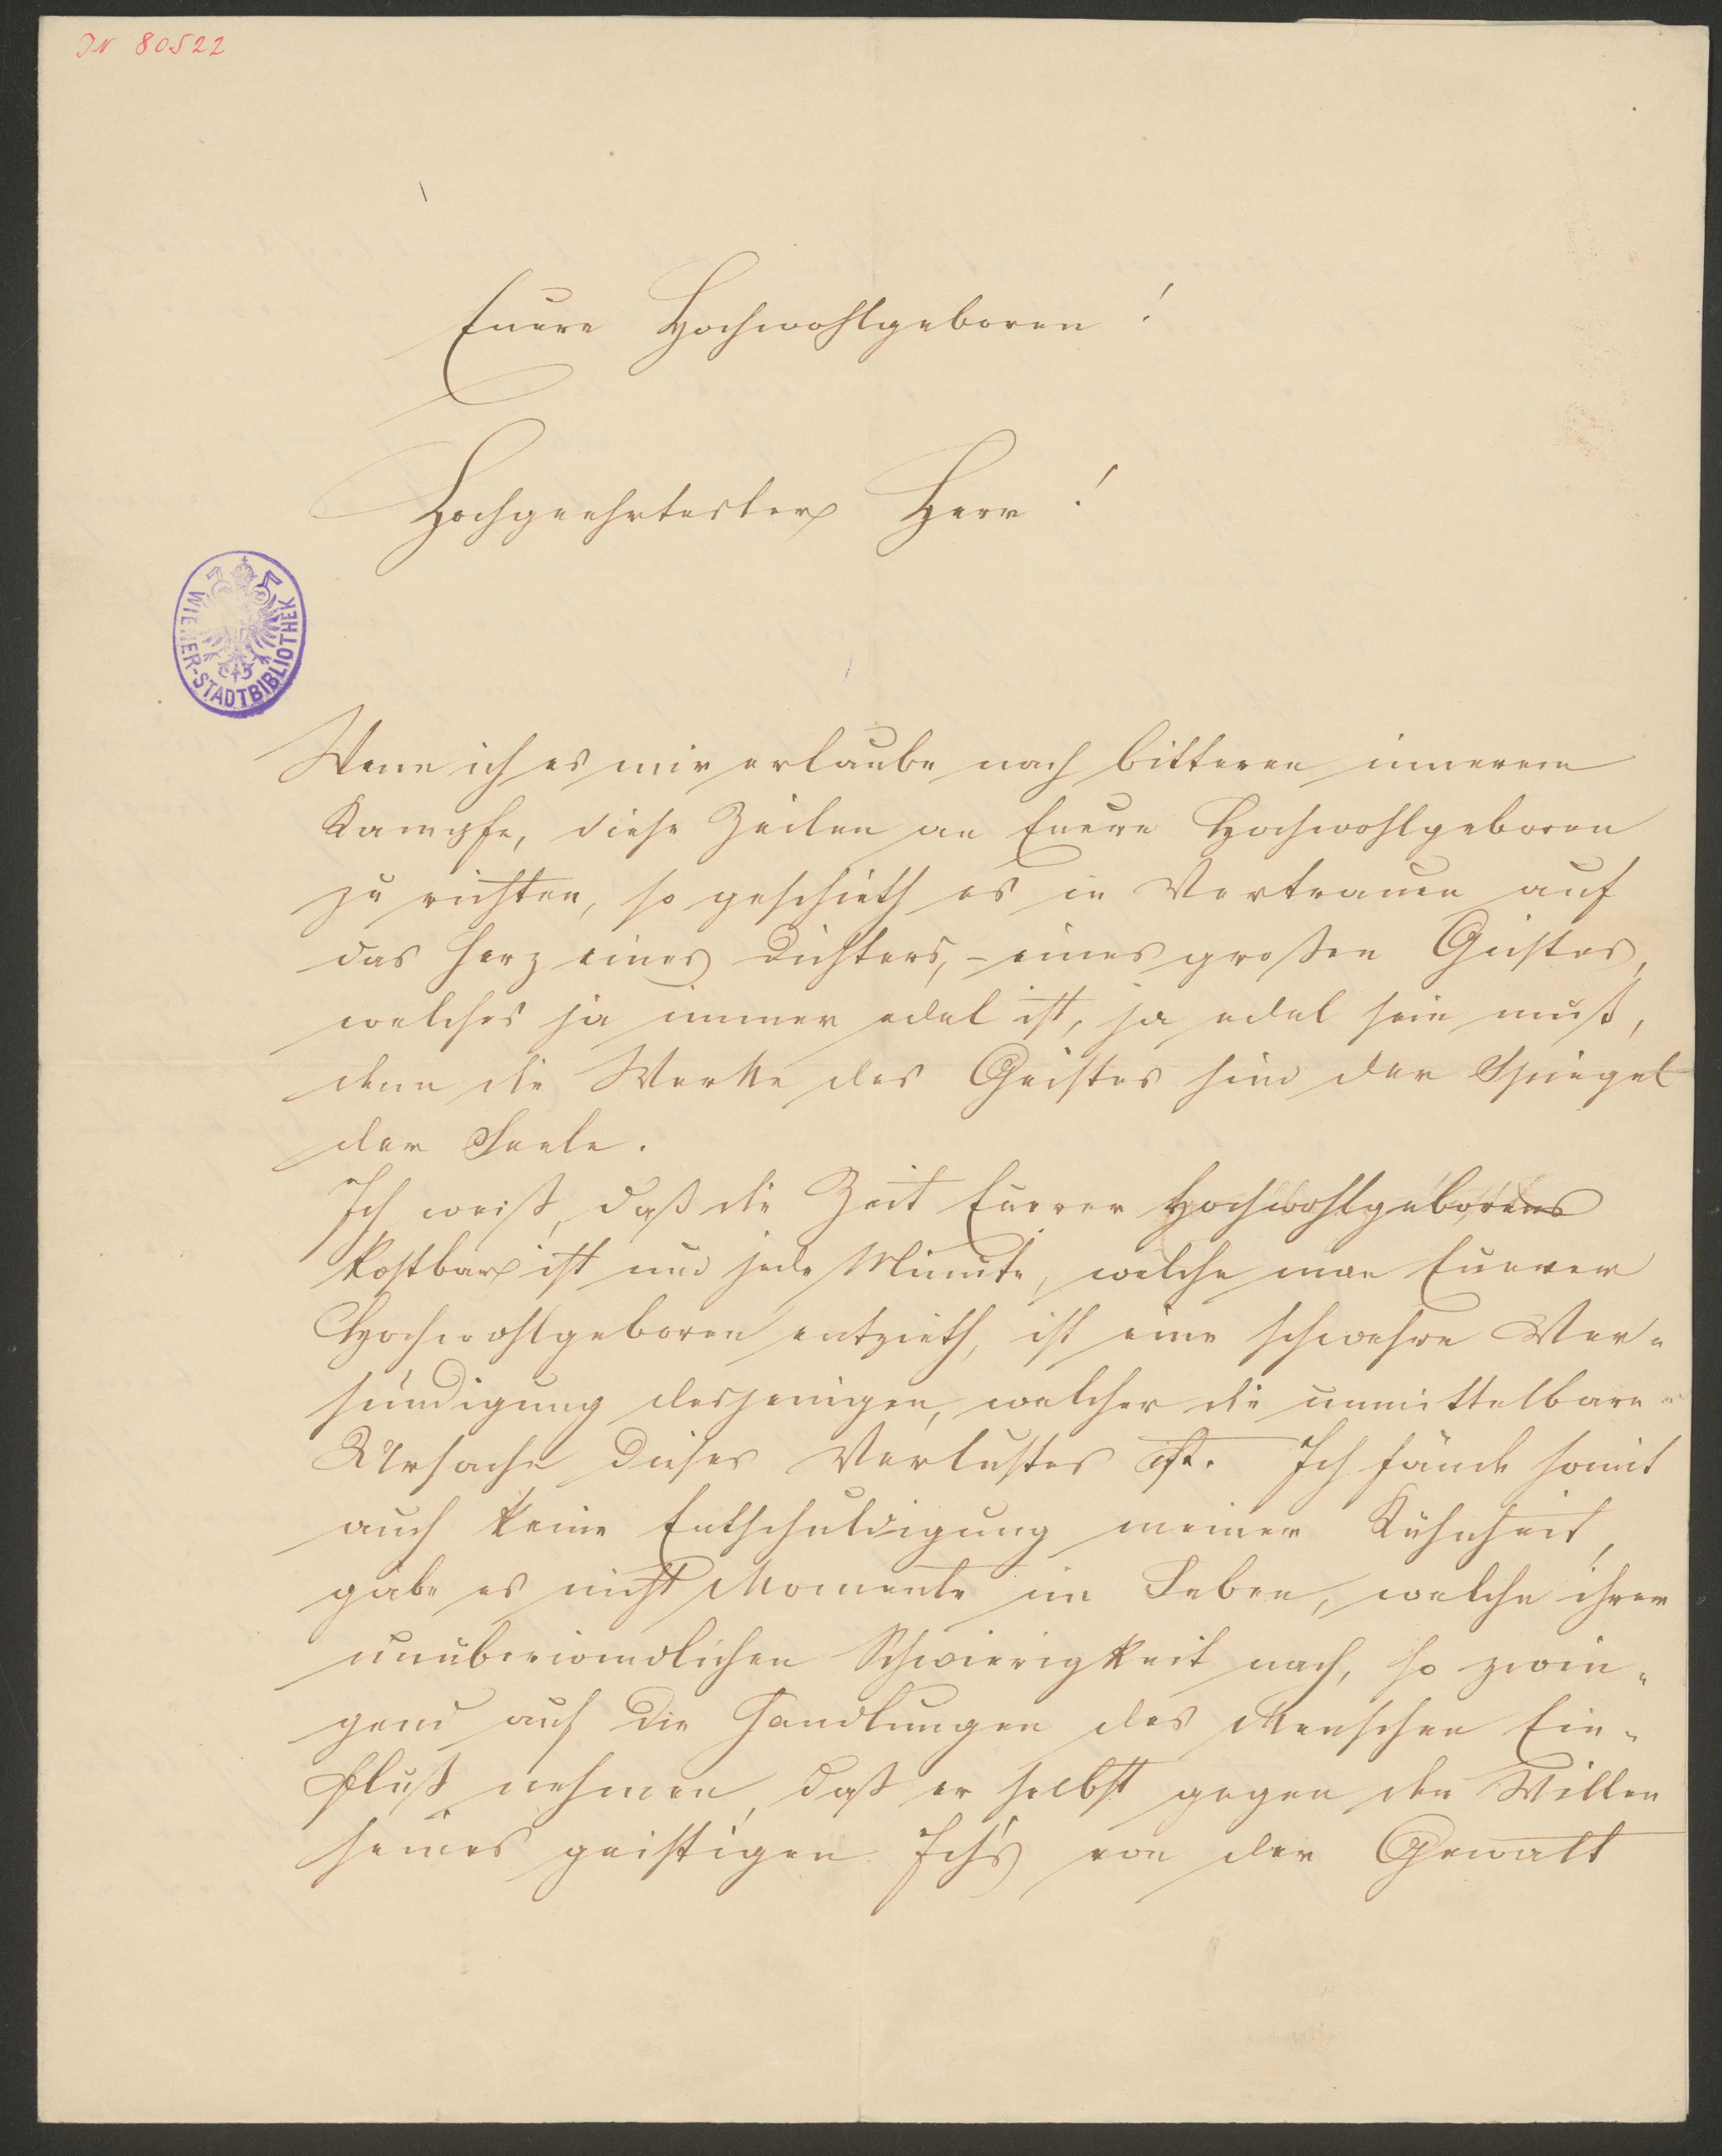 IN 80522
Euere Hochwohlgeboren!
Hochgeehrtester Herr!
WIENER-STADTBIBLIOTHEK
Wenn ich es mir erlaube nach bitteren inneren
Kampfe, diese Zeilen an Euere Hochwohlgeboren
zu richten, so geschieth es in Vertrauen auf
das Herz eines Dichters, – eines großen Geistes,
welches ja immer edel ist, ja edel sein muß,
denn die Werke des Geistes sind der Spiegel
der Seele.
Ich weiß, daß die Zeit Euerer Hochwohlgeborens
kostbar ist und jede Minute, welche man Euerer
Hochwohlgeboren entzieth, ist eine schwehre Ver-
sündigung desjenigen, welcher die unmittelbare
Ursache dieses Verlustes ist. Ich fände somit
auch keine Entschuldigung meiner Kühnheit,
gäbe es nicht Momente im Leben, welche ihrer
unüberwindlichen Schwierigkeit nach, so zwin-
gend auf die Handlungen des Menschen Ein-
fluß nehmen, daß er selbst gegen den Willen
seines geistigen Ich's von der Gewalt